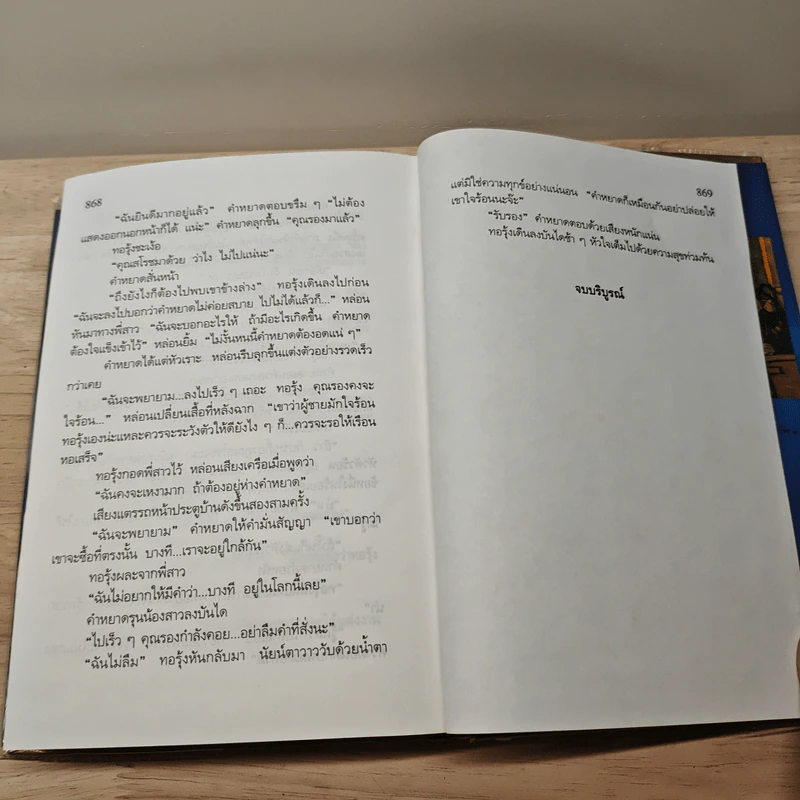 868
“ฉันยินดีมากอยู่แล้ว” คำหยาดตอบขรึม ๆ “ไม่ต้อง
แสดงออกนอกหน้าก็ได้ แน่ะ” คำหยาดลุกขึ้น “คุณรองมาแล้ว”
ทอรุ้งชะเง้อ
“คุณสโรชมาด้วย ว่าไง ไม่ไปแน่นะ”
คำหยาดสั่นหน้า
“ถึงยังไงก็ต้องไปพบเขาข้างล่าง” ทอรุ้งเดินลงไปก่อน
“ฉันจะลงไปบอกว่าคำหยาดไม่ค่อยสบาย ไปไม่ได้แล้วก็...” หล่อน
หันมาทางพี่สาว “ฉันจะบอกอะไรให้ ถ้ามีอะไรเกิดขึ้น คำหยาด
ต้องใจแข็งเข้าไว้” หล่อนยิ้ม “ไม่งั้นหนนี้คำหยาดต้องอดแน่ ๆ”
คำหยาดได้แต่หัวเราะ หล่อนรีบลุกขึ้นแต่งตัวอย่างรวดเร็ว
กว่าเคย
“ฉันจะพยายาม...ลงไปเร็ว ๆ เถอะ ทอรุ้ง คุณรองคงจะ
ใจร้อน...” หล่อนเปลี่ยนเสื้อที่หลังฉาก “เขาว่าผู้ชายมักใจร้อน
ทอรุ้งเองน่ะแหละควรจะระวังตัวให้ดียังไง ๆ ก็...ควรจะรอให้เรือน
หอเสร็จ”
ทอรุ้งกอดพี่สาวไว้ หล่อนเสียงเครือเมื่อพูดว่า
“ฉันคงจะเหงามาก ถ้าต้องอยู่ห่างคำหยาด”
เสียงแตรรถหน้าประตูบ้านดังขึ้นสองสามครั้ง
“ฉันจะพยายาม” คำหยาดให้คำมั่นสัญญา “เขาบอกว่า
เขาจะซื้อที่ตรงนั้น บางที...เราจะอยู่ใกล้กัน”
ทอรุ้งผละจากพี่สาว
“ฉันไม่อยากให้มีคำว่า...บางที อยู่ในโลกนี้เลย”
คำหยาดรุนน้องสาวลงบันได
“ไปเร็ว ๆ คุณรองกำลังคอย...อย่าลืมคำที่สั่งนะ”
“ฉันไม่ลืม” ทอรุ้งหันกลับมา นัยน์ตาวาววับด้วยน้ำตา
869
แต่มิใช่ความทุกข์อย่างแน่นอน “คำหยาดก็เหมือนกันอย่าปล่อยให้
เขาใจร้อนนะจ๊ะ”
“รับรอง” คำหยาดตอบด้วยเสียงหนักแน่น
ทอรุ้งเดินลงบันไดช้า ๆ หัวใจเต็มไปด้วยความสุขท่วมท้น
จบบริบูรณ์